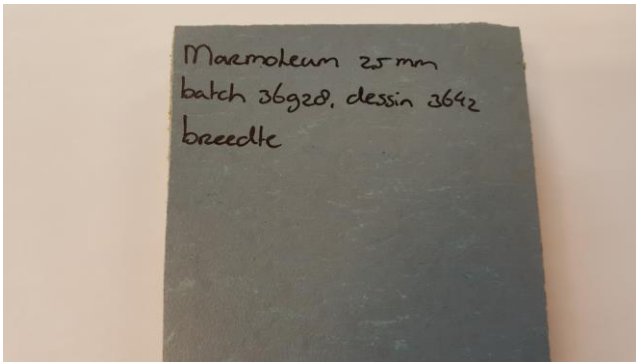 Marmoleum 2,5 mm
batch 36928, dessin 3642
breedte